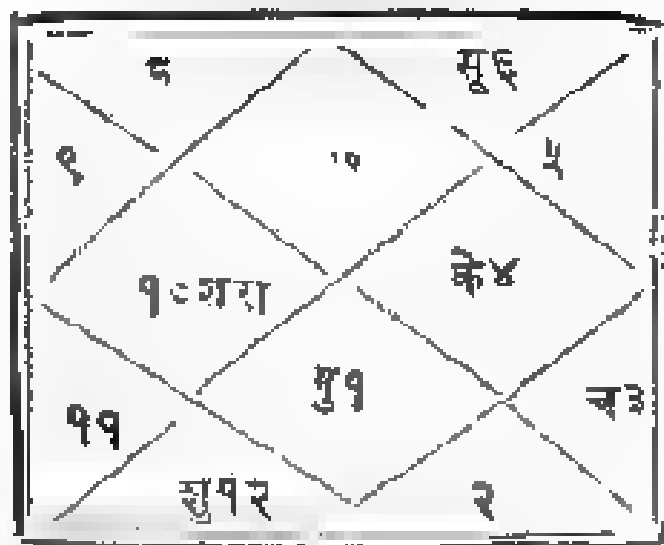 ८ सू६
९ ७ ५
१०शरा के४
गु१ च३
११
शु१२ २